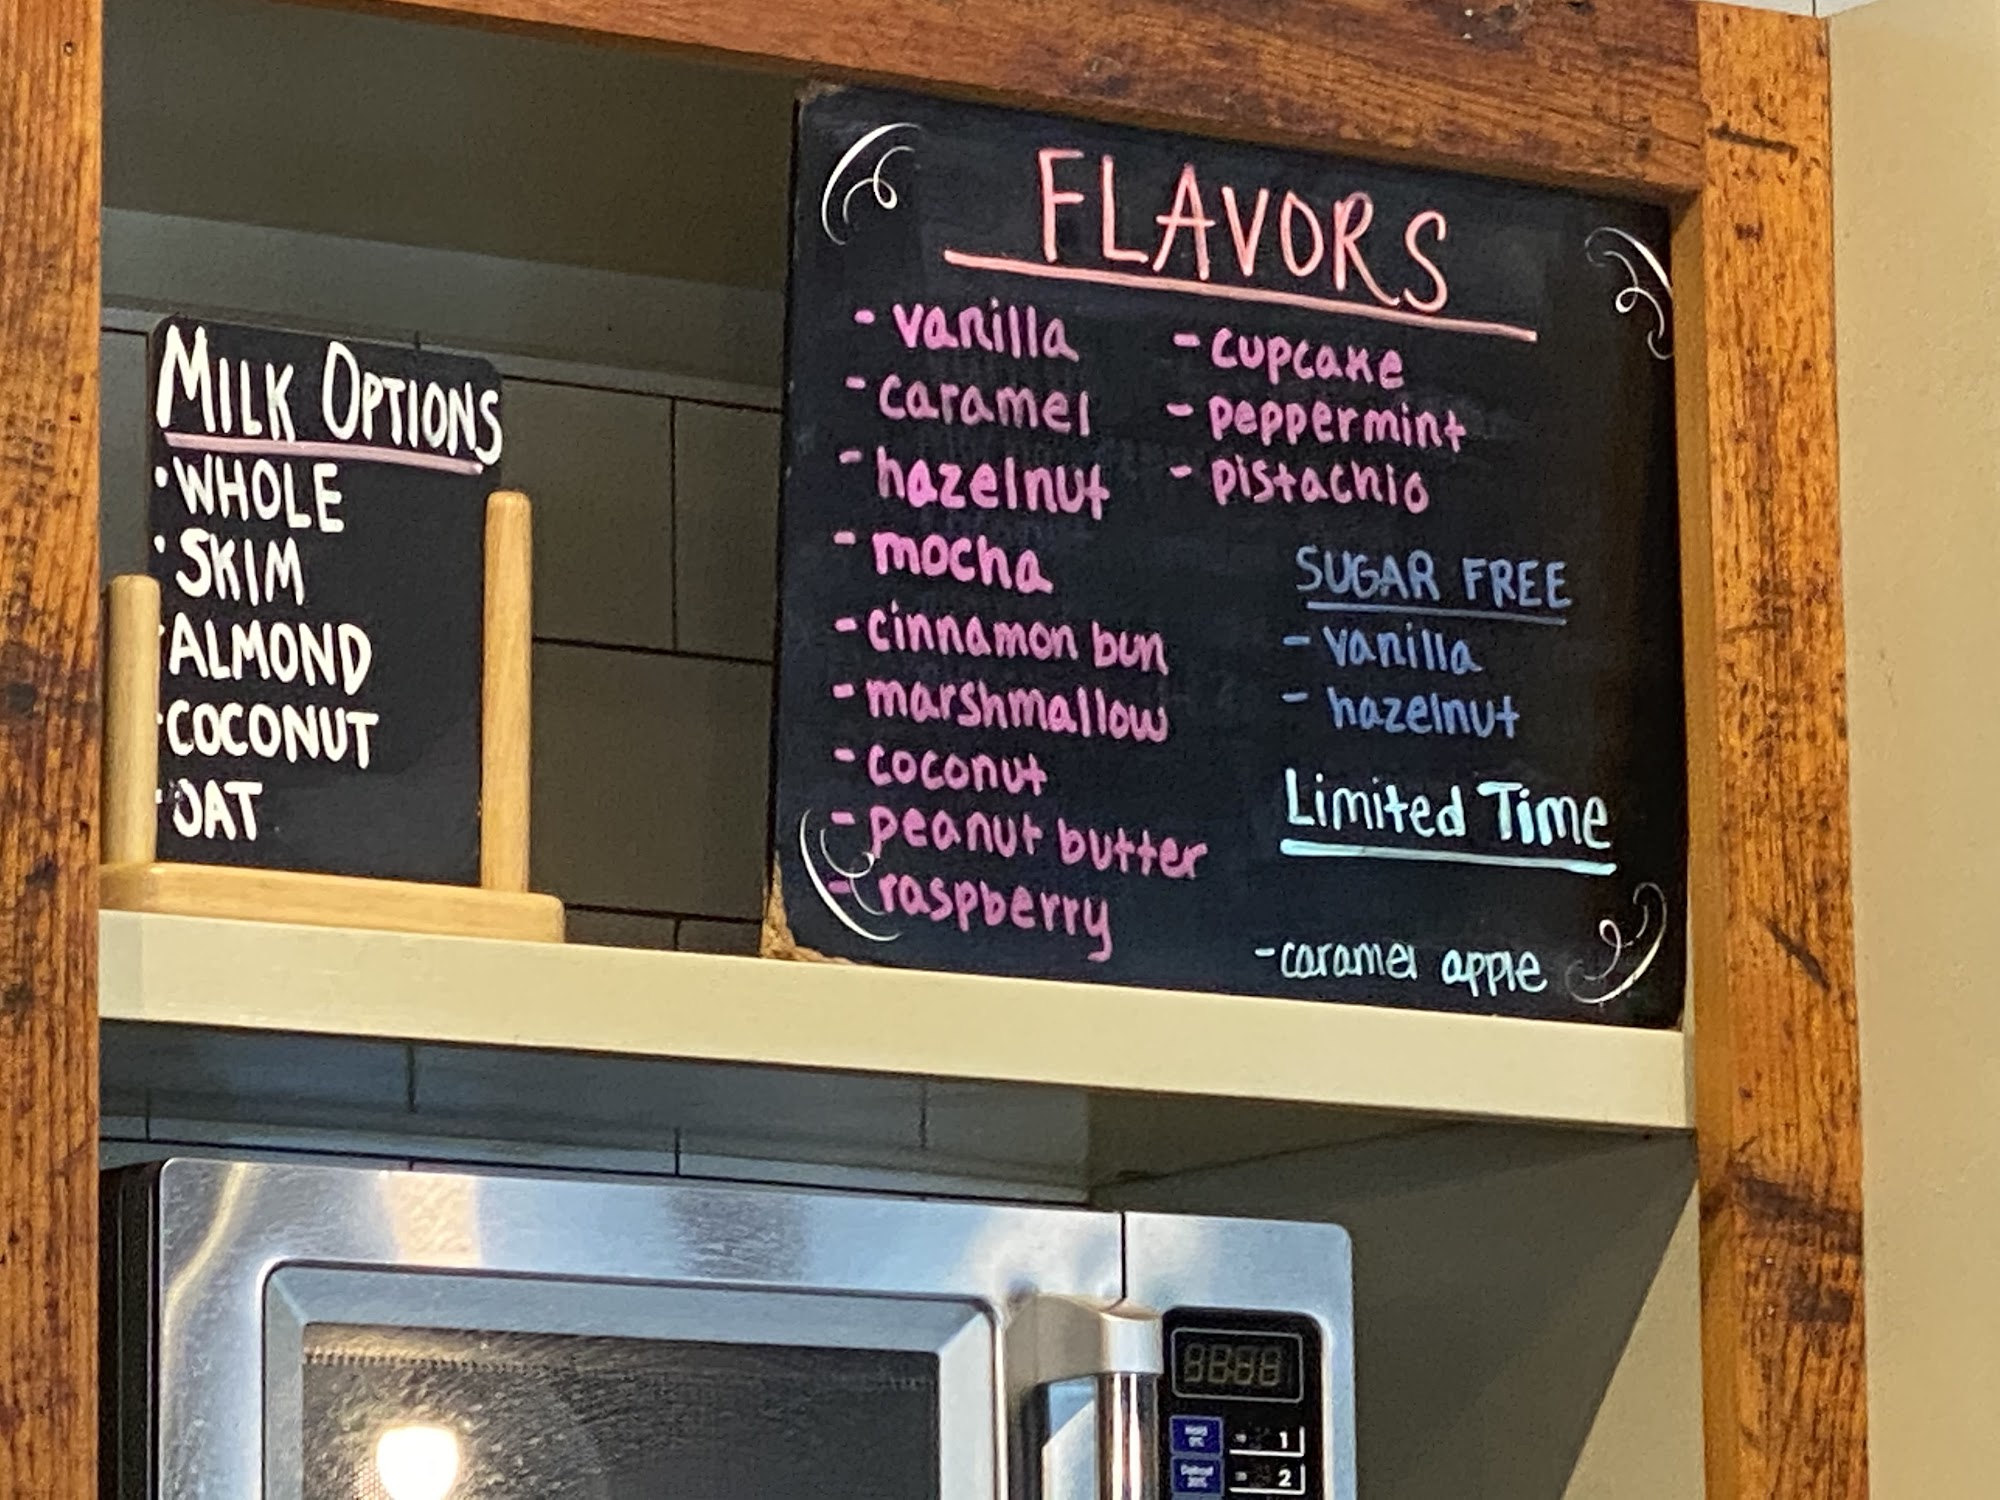 MILK OPTIONS
·WHOLE
·SKIM
·ALMOND
·COCONUT
·OAT
FLAVORS
- vanilla
- caramel
- hazelnut
- mocha
- cinnamon bun
- marshmallow
- coconut
- peanut butter
- raspberry
- cupcake
- peppermint
- pistachio
SUGAR FREE
- vanilla
- hazelnut
Limited Time
- caramel apple
1
2